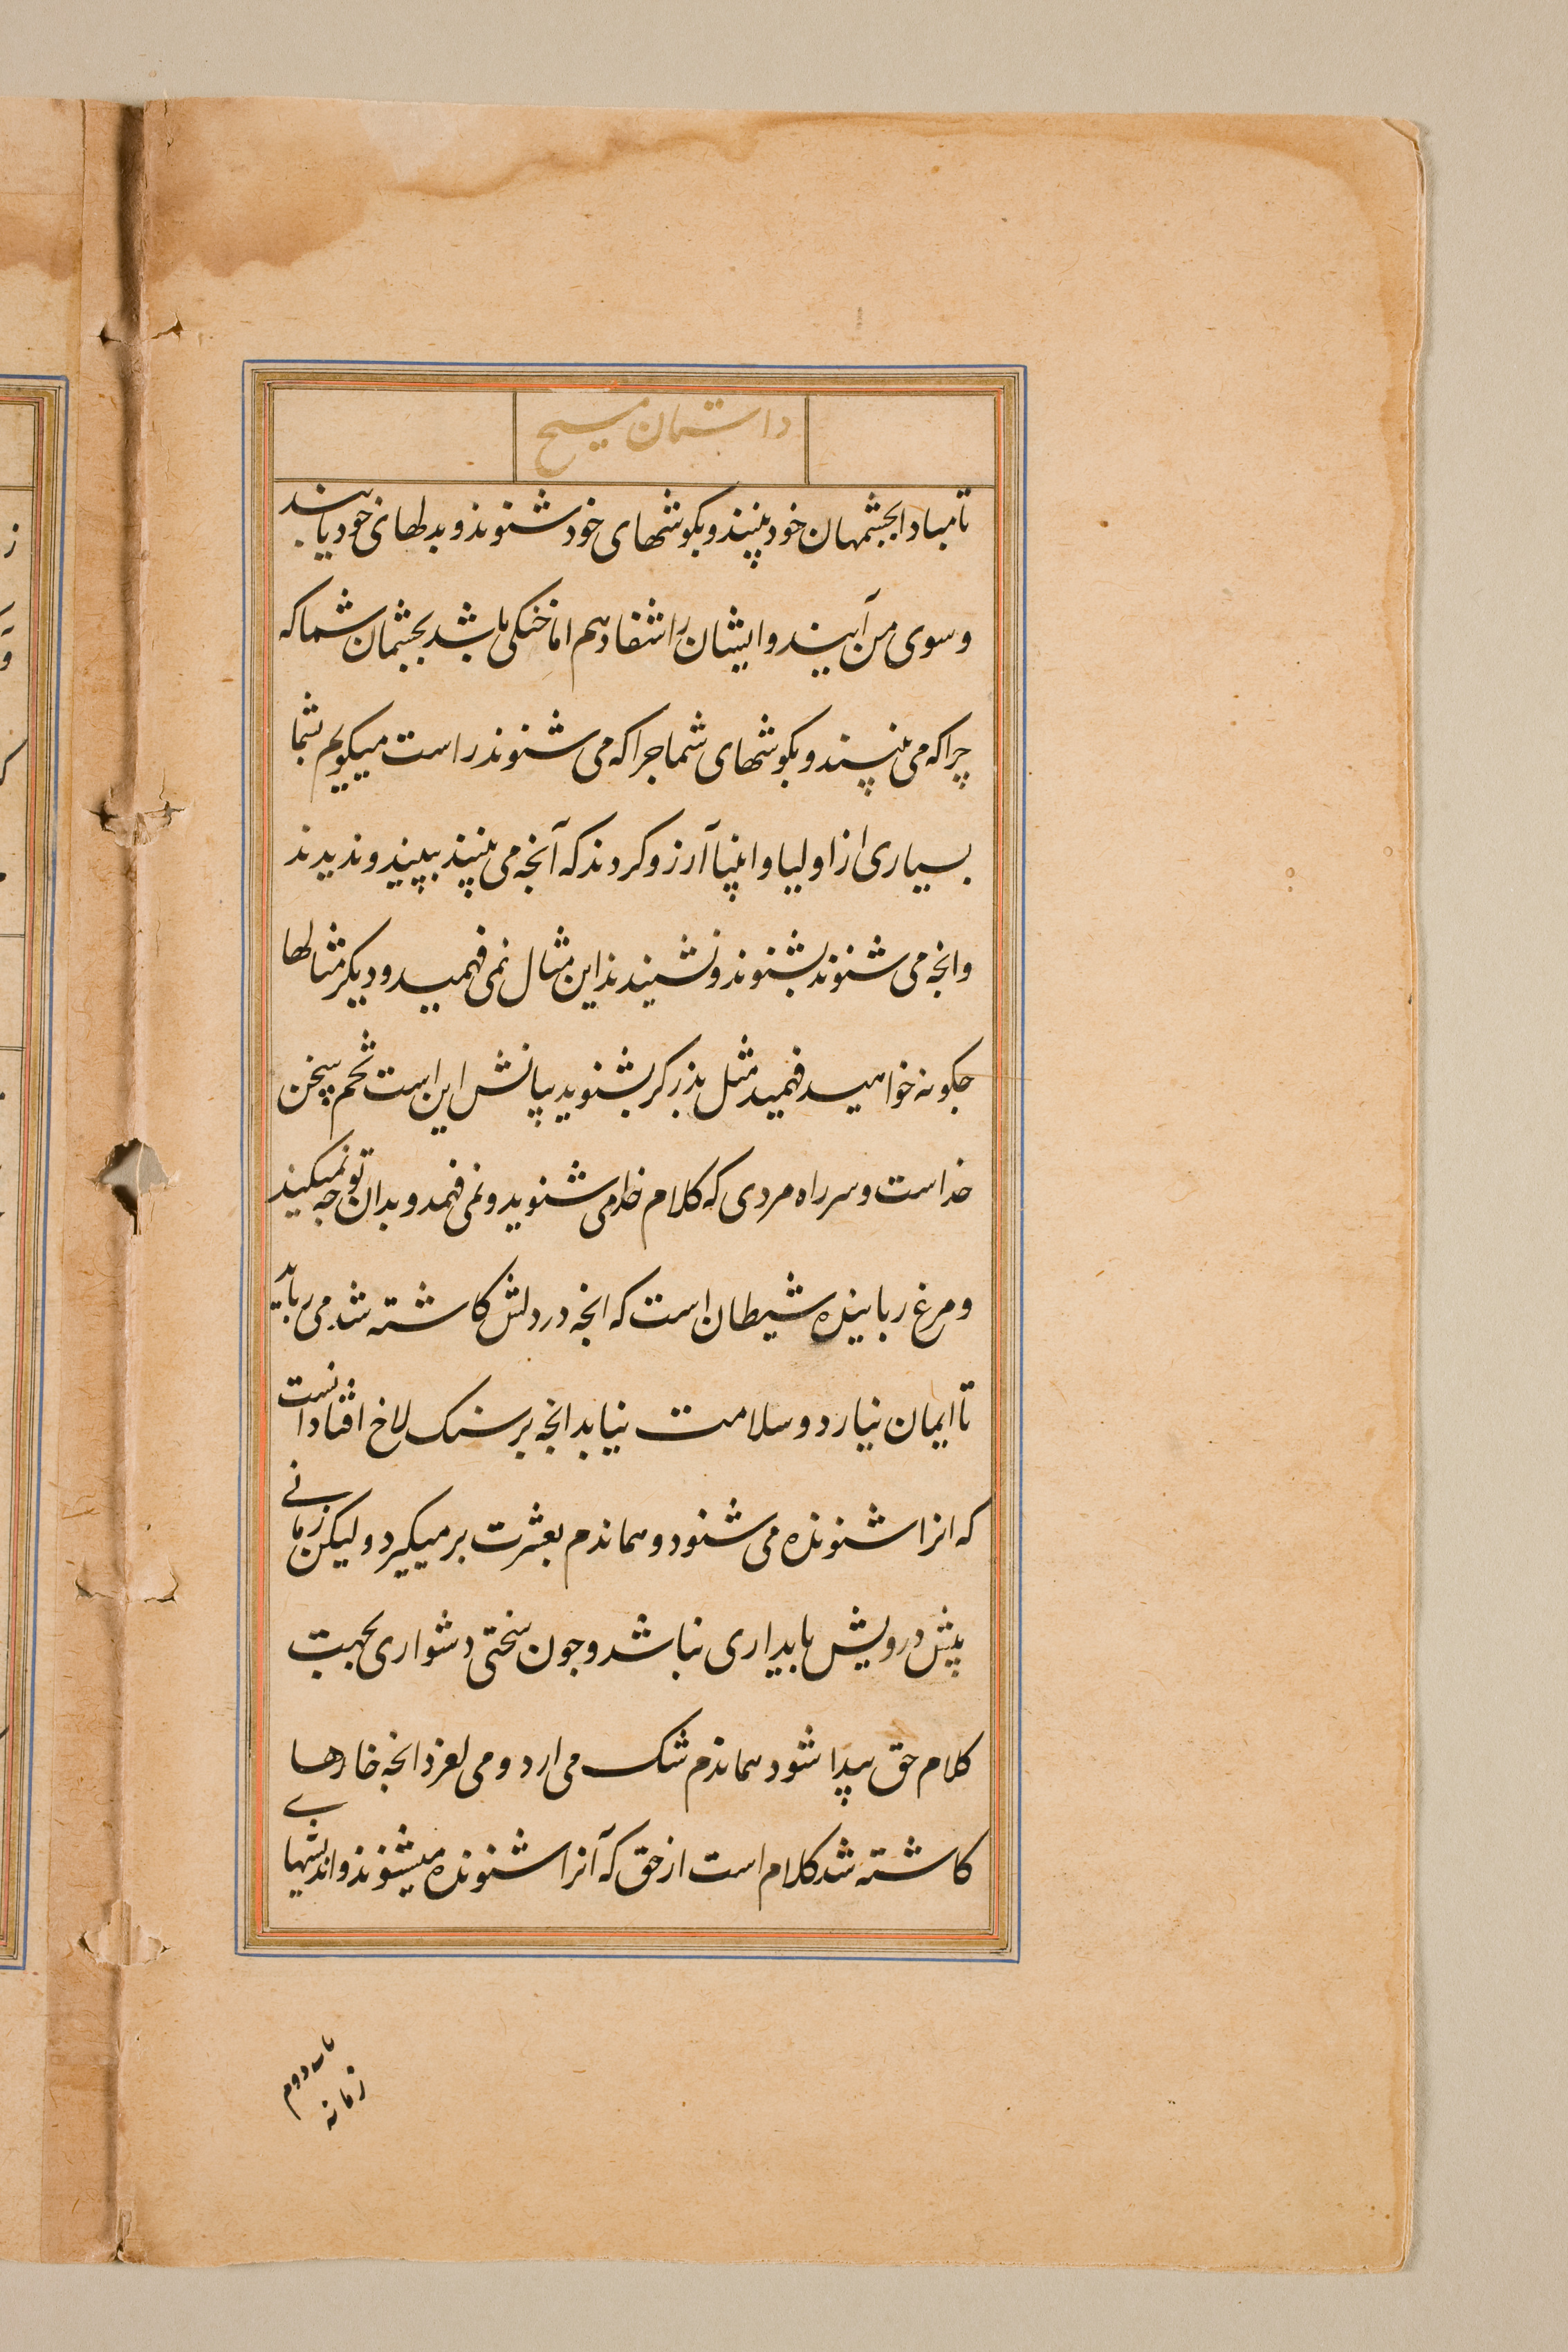 داستان مسیح
تا مبادا بجشمهان خود بینند و بکوشهای خود شنوند و بدلهای خود یابند
و سوی من آیند و ایشان را شفا دهم اما خنکی باشد بجشمان شما که
چرا که می بینند و بکوشهای شما جرا که می شنوند راست میکویم بشما
بسیاری از اولیا و انبیا آرزو کردند که آنجه می بینند ببینند و ندیدند
و انجه می شنوند بشنوند و نشیندند این مثال نمی فهمید و دیکر مثالها
جکونه خواهید فهمید مثل بذرکر بشنوید بیانش این است تخم سخن
خداست و سر راه مردی که کلام خدا می شنوید و نمی فهمد و بدان توجه نمیکند
و مرغ رباینده شیطان است که انجه در دلش کاشته شد می رباید
تا ایمان نیارد و سلامت نیابد انجه بر سنک لاخ افتاد انست
که انرا شنونده می شنود و هماندم بعشرت بر میکیرد و لیکن زمانی
بیش درویش بایداری نباشد و جون سختی دشواری بجهت
کلام حق بیدا شود هماندم شک می ارد و می لغزد انجه خارها
کاشته شد کلام است از حق که آنرا شنونده میشنوند و اندیشهای
زمانه